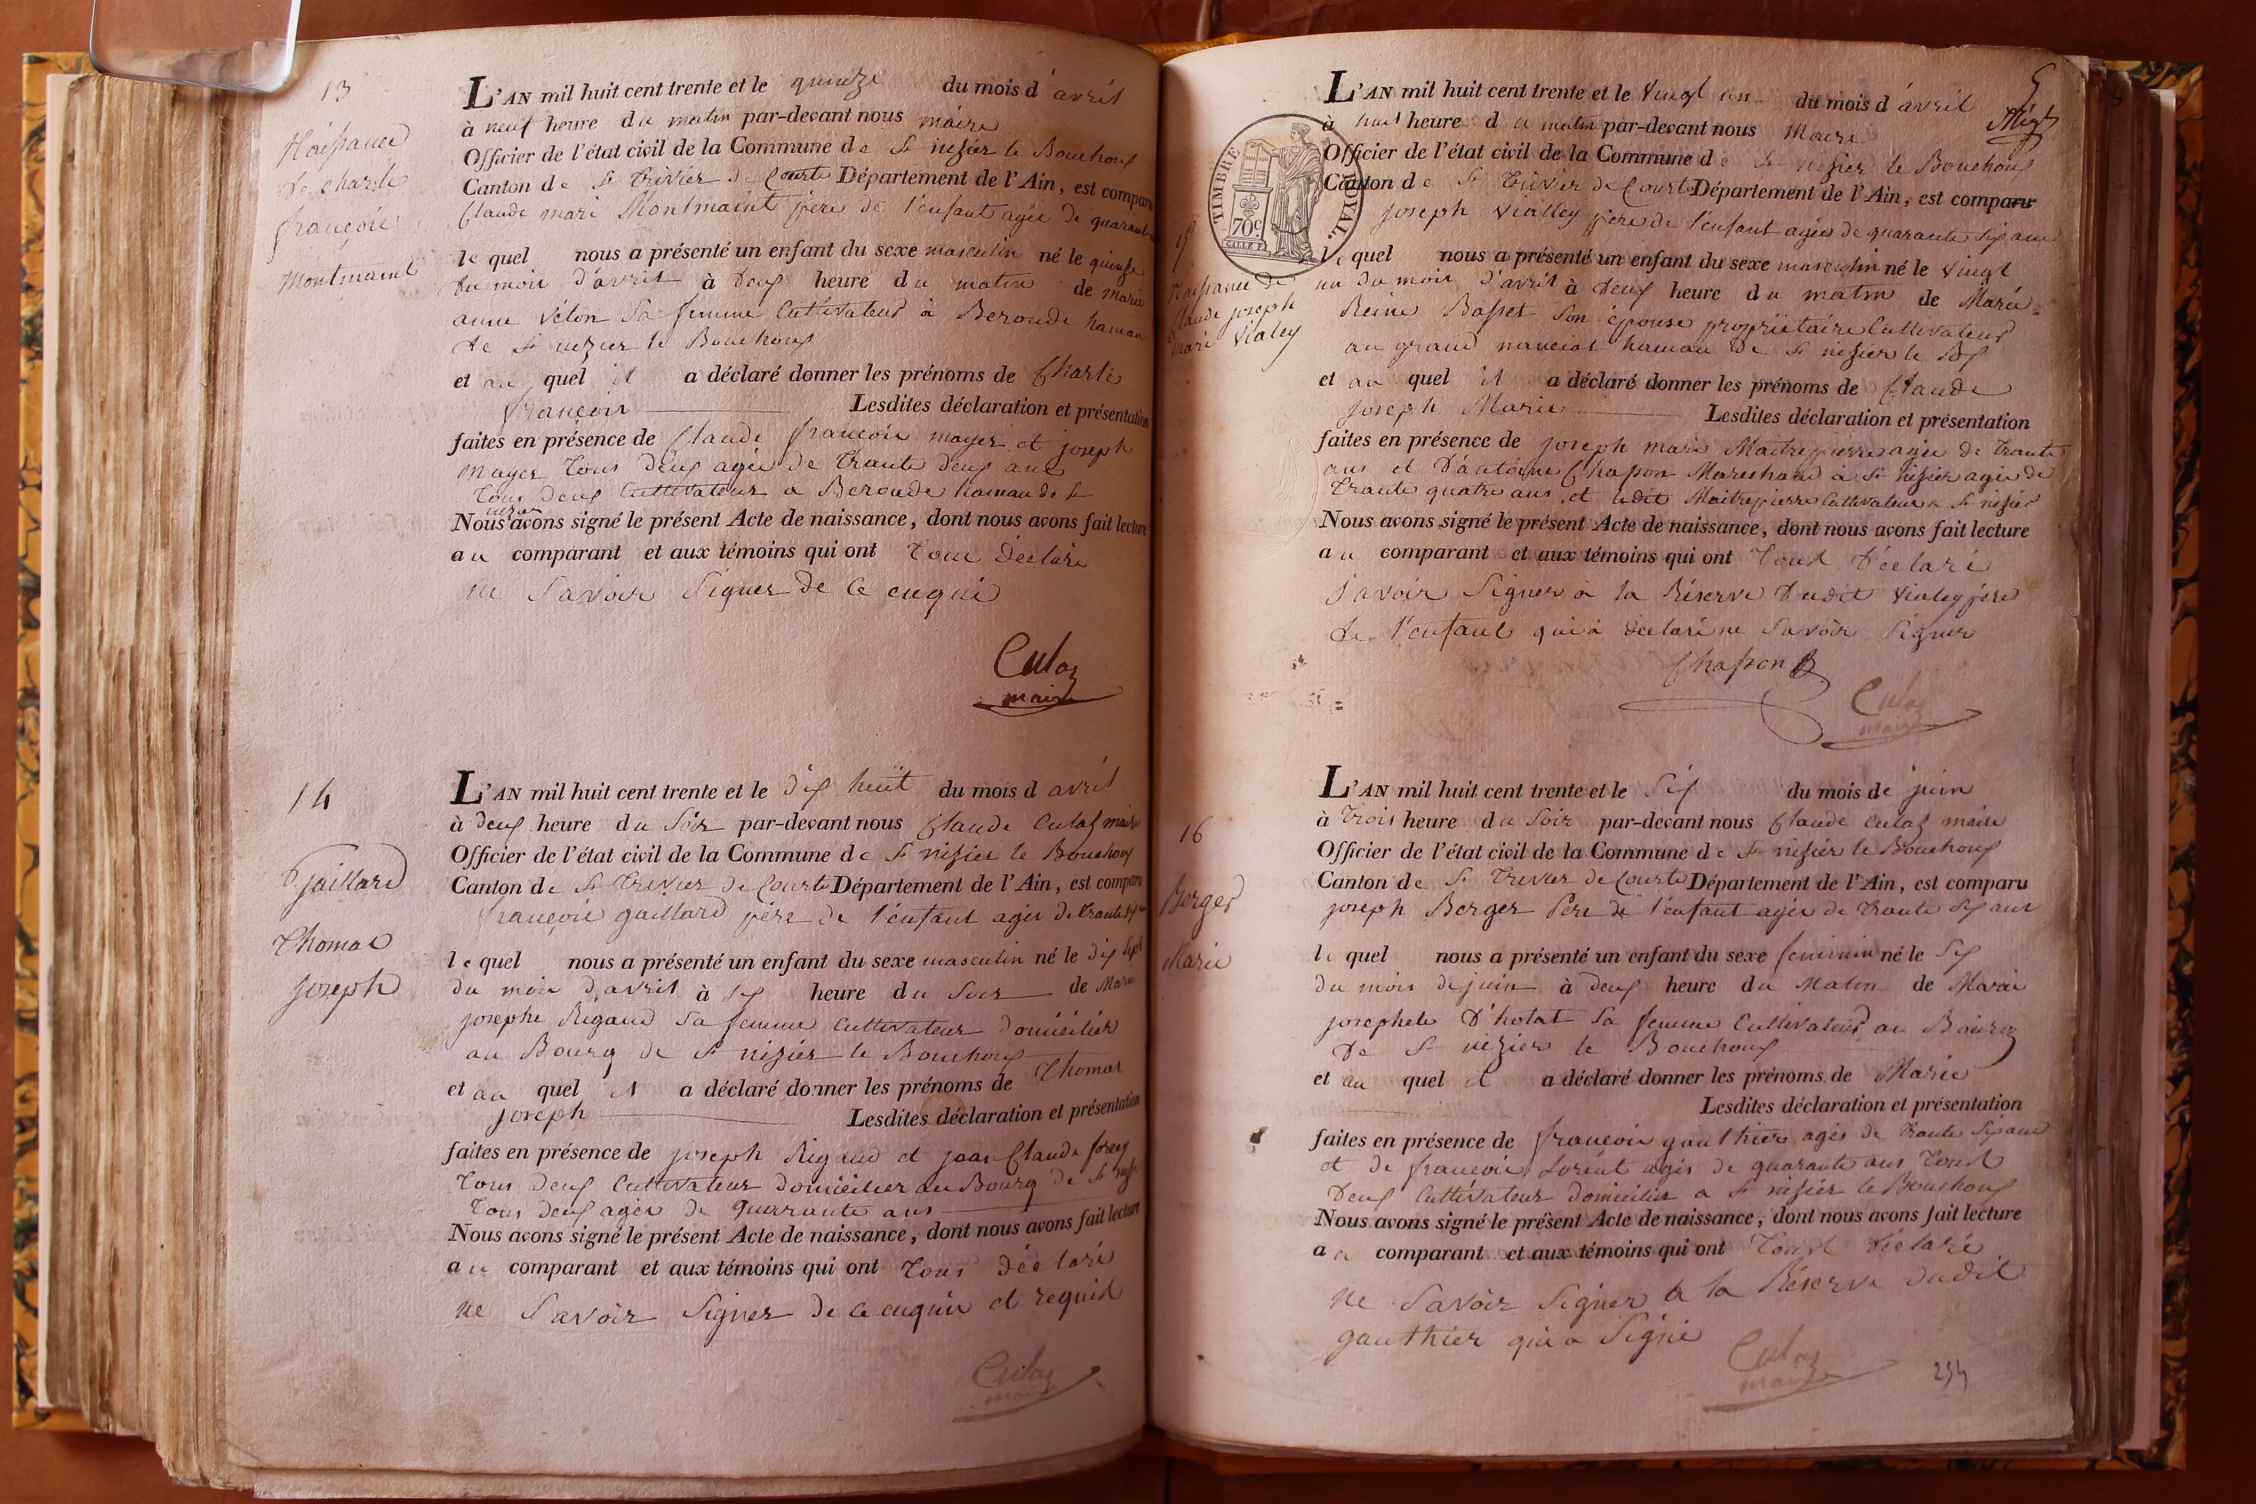 13
Naissance
de charle
françois
Montmaint
L'AN mil huit cent trente et le quinze du mois d'avril
à neuf heure du matin par-devant nous maire
Officier de l'état civil de la Commune de St nizier le Bouchoux
Canton de St Trivier de Courte Département de l'Ain, est comparu
Claude marie Montmaint père de l'enfant agée de quarante
le quel nous a présenté un enfant du sexe masculin né le quinze
du mois d'avril à deux heure du matin de marie
anne véton Sa femme Cultivateur à Beroude hameau
de St nizier le Bouchoux
et au quel il a déclaré donner les prénoms de Charle
françois Lesdites déclaration et présentation
faites en présence de Claude françois mayer et joseph
mayer Tous deux agée de trante deux ans
Tous deux Cultivateur a Beroude hameau de St
Nous avons signé le présent Acte de naissance, dont nous avons fait lecture
au comparant et aux témoins qui ont Tous Déclaré
ne Savoir Signer de ce enquis
Culaz
maire
14
Gaillard
Thomas
Joseph
L'AN mil huit cent trente et le dix huit du mois d avril
à deux heure du Soir par-devant nous Claude Culaz maire
Officier de l'état civil de la Commune de St nizier le Bouchoux
Canton de St Trivier de Courte Département de l'Ain, est comparu
françois gaillard père de l'enfant agée de trante
le quel nous a présenté un enfant du sexe masculin né le dix sept
du mois d,avril à six heure du Soir de Marie
josephe Rigaud Sa femme Cultivateur domicilier
au Bourg de St nizier le Bouchoux
et au quel il a déclaré donner les prénoms de Thomas
joseph Lesdites déclaration et présentation
faites en présence de joseph Rigaud et jean Claude forey
Tous deux Cultivateur domicilier au Bourg de St
Tous deux agée de quarrante ans
Nous avons signé le présent Acte de naissance, dont nous avons fait lecture
au comparant et aux témoins qui ont Tous déclaré
ne Savoir Signer de ce enquis et requis
Culaz
maire
5
TIMBRE ROYAL.
70c
15
Naissance de
Claude joseph
marie Vialey
L'AN mil huit cent trente et le Vingt un du mois d'avril
à huit heure du matin par-devant nous Maire
Officier de l'état civil de la Commune de St nizier le Bouchoux
Canton de St Trivier de Courte Département de l'Ain, est comparu
joseph Vialley père de l'enfant agée de quarante six ans
le quel nous a présenté un enfant du sexe masculin né le Vingt
un du mois d'avril à deux heure du matin de Marie
Reine Basset Son épouse propriétaire Cultivateur
au grand hameau de St nizier le Bx
et au quel il a déclaré donner les prénoms de Claude
joseph Marie Lesdites déclaration et présentation
faites en présence de joseph marie Maitrepierre agée de trante
ans et D'antoine Chasson Mareschand à St nizier agée de
trante quatre ans et ledit Maitrepierre Cultivateur a St nizier
Nous avons signé le présent Acte de naissance, dont nous avons fait lecture
au comparant et aux témoins qui ont Tout Déclaré
Savoir Signer à la Réserve Dudit Vialey père
de l'enfant qui à déclaré ne Savoir Signer
Chasson
Culaz
maire
16
Berger
Marie
L'AN mil huit cent trente et le Six du mois de juin
à trois heure du Soir par-devant nous Claude Culaz maire
Officier de l'état civil de la Commune de St nizier le Bouchoux
Canton de St Trivier de Courte Département de l'Ain, est comparu
joseph Berger Père de l'enfant agée de trante Six ans
le quel nous a présenté un enfant du sexe feminin né le Six
du mois de juin à deux heure du Matin de Marie
josephete D'hotat Sa femme Cultivateur au Bourg
De St nizier le Bouchoux
et au quel il a déclaré donner les prénoms de Marie
Lesdites déclaration et présentation
faites en présence de françois gauthier agée de trante Six ans
et de françois Lorent agée de quarante ans Tout
Deux Cultivateur domicilier a St nizier le Bouchoux
Nous avons signé le présent Acte de naissance, dont nous avons fait lecture
au comparant et aux témoins qui ont Tout Déclaré
ne Savoir Signer à la Réserve dudit
gauthier qui a Signé
Culaz
maire
254